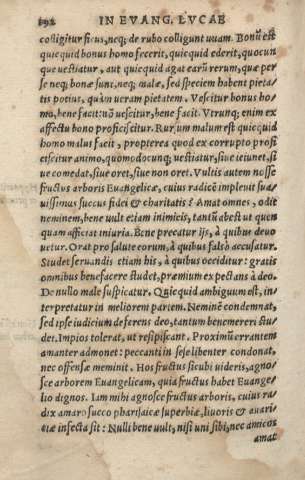 192 IN EVANG. LVCAE
colligitur ficus, neq; de rubo colligunt uuam. Bonū est
quicquid bonus homo fecerit, quicquid ederit, quocun
que uestiatur, aut quicquid agat earū rerum, quæ per
se neq; bonæ sunt, neq; malæ, sed speciem habent pieta/
tis potius, quàm ueram pietatem. Vescitur bonus ho/
mo, bene facit: nō uescitur, bene facit. Vtrunq; enim ex
affectu bono proficiscitur. Rursum malum est quicquid
homo malus facit, propterea quod ex corrupto profi
ciscitur animo, quomodocunq; uestiatur, siue ieiunet, si
ue comedat, siue oret, siue non oret. Vultis autem nosse
fructus arboris Euangelicæ, cuius radicē impleuit sua/
uissimus succus fidei & charitatis? Amat omnes, odit
neminem, bene uult etiam inimicis, tantū abest ut quen
quam afficiat iniuria. Bene precatur ijs, à quibus deuo
uetur. Orat pro salute eorum, à quibus falsò accusatur.
Studet seruandis etiam his, à quibus occiditur: gratis
omnibus benefacere studet, præmium expectans à deo.
De nullo male suspicatur. Quicquid ambiguum est, in/
terpretatur in meliorem partem. Neminē condemnat,
sed ipse iudicium deferens deo, tantum benemereri stu/
det. Impios tolerat, ut resipiscant. Proximū errantem
amanter admonet: peccanti in se se libenter condonat,
nec offensæ meminit. Hos fructus sicubi uideris, agno/
sce arborem Euangelicam, quia fructus habet Euange/
lio dignos. Iam mihi agnosce fructus arboris, cuius ra/
dix amaro succo pharisaicæ superbiæ, liuoris & auari/
tiæ infecta sit: Nulli bene uult, nisi uni sibi, nec amicos
amat